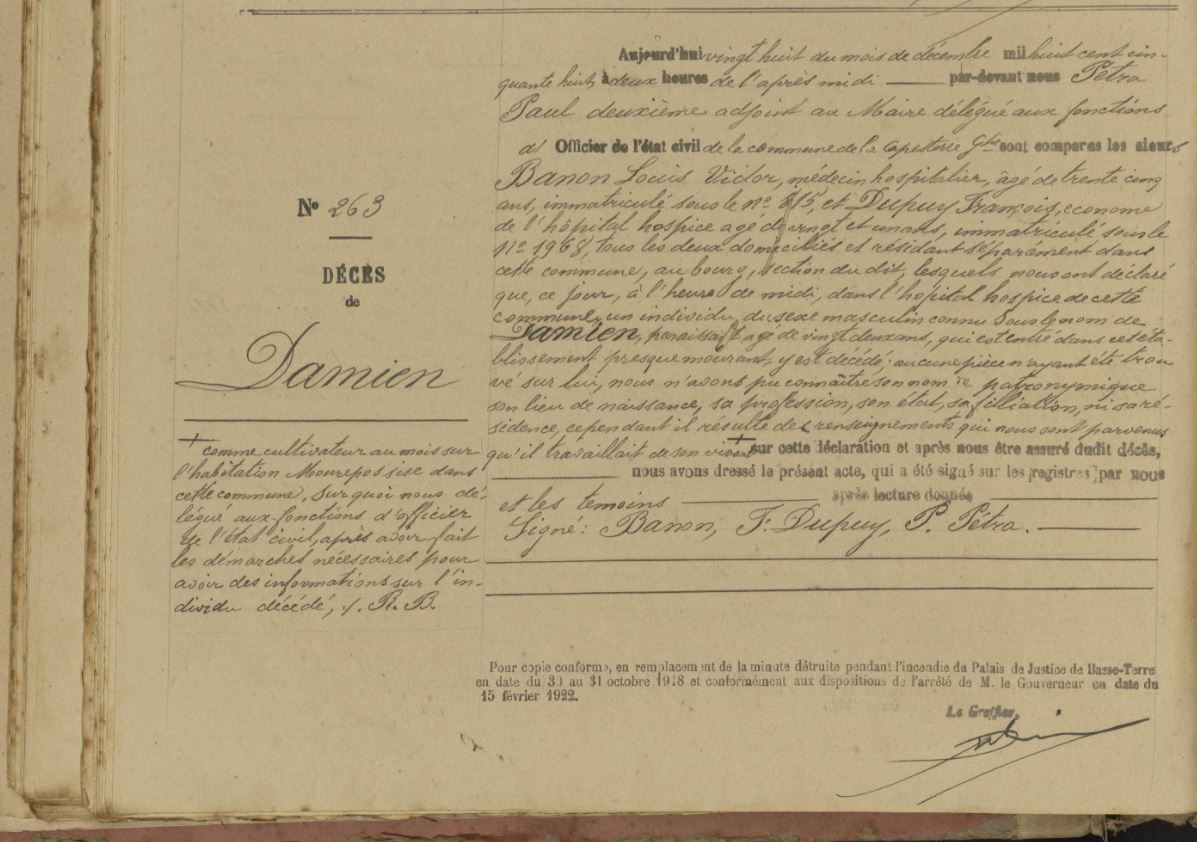 Aujourd'hui vingt huit du mois de décembre mil huit cent cin-
quante huit, à deux heures de l'après midi par-devant nous Pétra
Paul deuxième adjoint au Maire délégué aux fonctions
d'Officier de l'état civil de la commune de la Capesterre Gde sont comparus les sieurs
Banon Louis Victor, médecin hospitalier, âgé de trente cinq
ans, immatriculé sous le No 815, et Dupuy François, econome
de l'hôpital hospice agé de vingt et un ans, immatriculé sous le
No 1968, tous les deux domiciliés et résidant séparément dans
cette commune, au bourg, section du dit, lesquels nous ont déclaré
que, ce jour, à l'heure de midi, dans l'hôpital hospice de cette
commune, un individu, du sexe masculin connu sous le nom de
Damien, paraissant agé de vingt deux ans, qui est entré dans cet éta-
blissement presque mourant, y est décédé; aucune pièce n'ayant été trou
vé sur lui, nous n'avons pu connaître son nom patronymique
son lieu de naissance, sa profession, son état, sa filiation, ni sa ré-
sidence, cependant il résulte des renseignements qui nous sont parvenus
qu'il travaillait de son vivant + sur cette déclaration et après nous être assuré dudit décès,
nous avons dressé le présent acte, qui a été signé sur les registres par nous
et les temoins après lecture donnée
Signé: Banon, F. Dupuy, P. Pétra.
No 263
DÉCÈS
de
Damien
+ comme cultivateur au mois sur
l'habitation Mourepos sise dans
cette commune. Sur quoi nous dé-
légué aux fonctions d'officier
de l'état civil, après avoir fait
les démarches nécessaires pour
avoir des informations sur l'in-
dividu décédé, /. R. B.
Pour copie conforme, en remplacement de la minute détruite pendant l'incendie du Palais de Justice de Basse-Terre
en date du 30 au 31 octobre 1918 et conformément aux dispositions de l'arrêté de M. le Gouverneur en date du
15 février 1922.
Le Greffier,